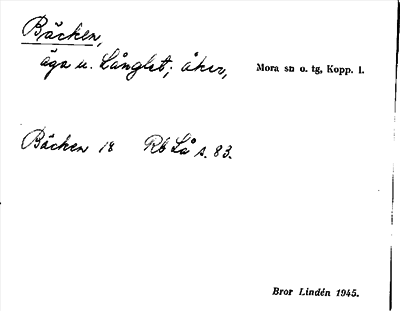 Bäcken,
äga u. Långlet; åker, Mora sn o. tg, Kopp. l.
Bäcken 18 Rb Lå s. 83.
Bror Lindén 1945.